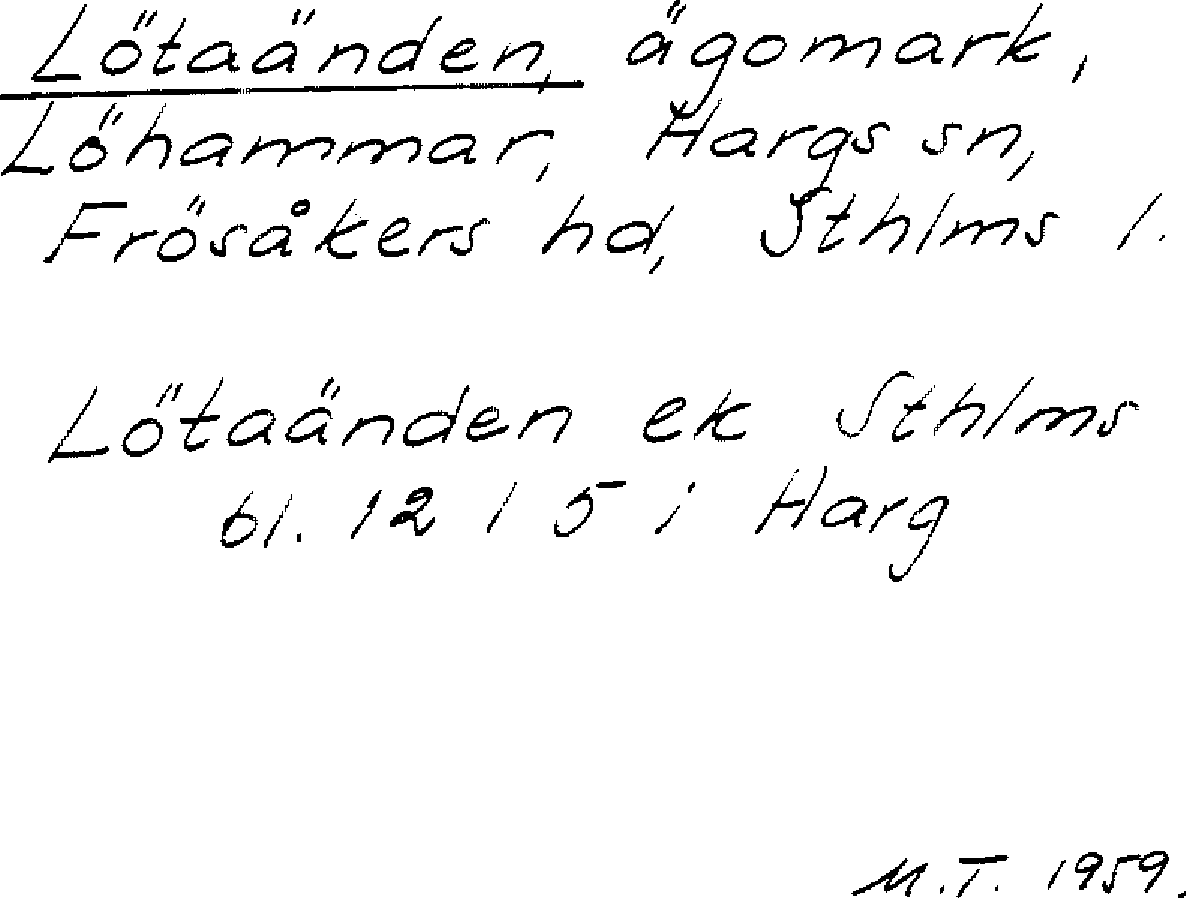 Lötaänden, ägomark,
Löhammar, Hargs sn,
Frösåkers hd, Sthlms l.
Lötaänden ek Sthlms
bl. 12 l 5 i Harg
M.T. 1959.